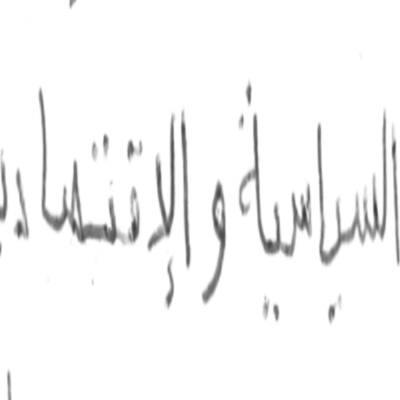 السياسية و الإقتصادية